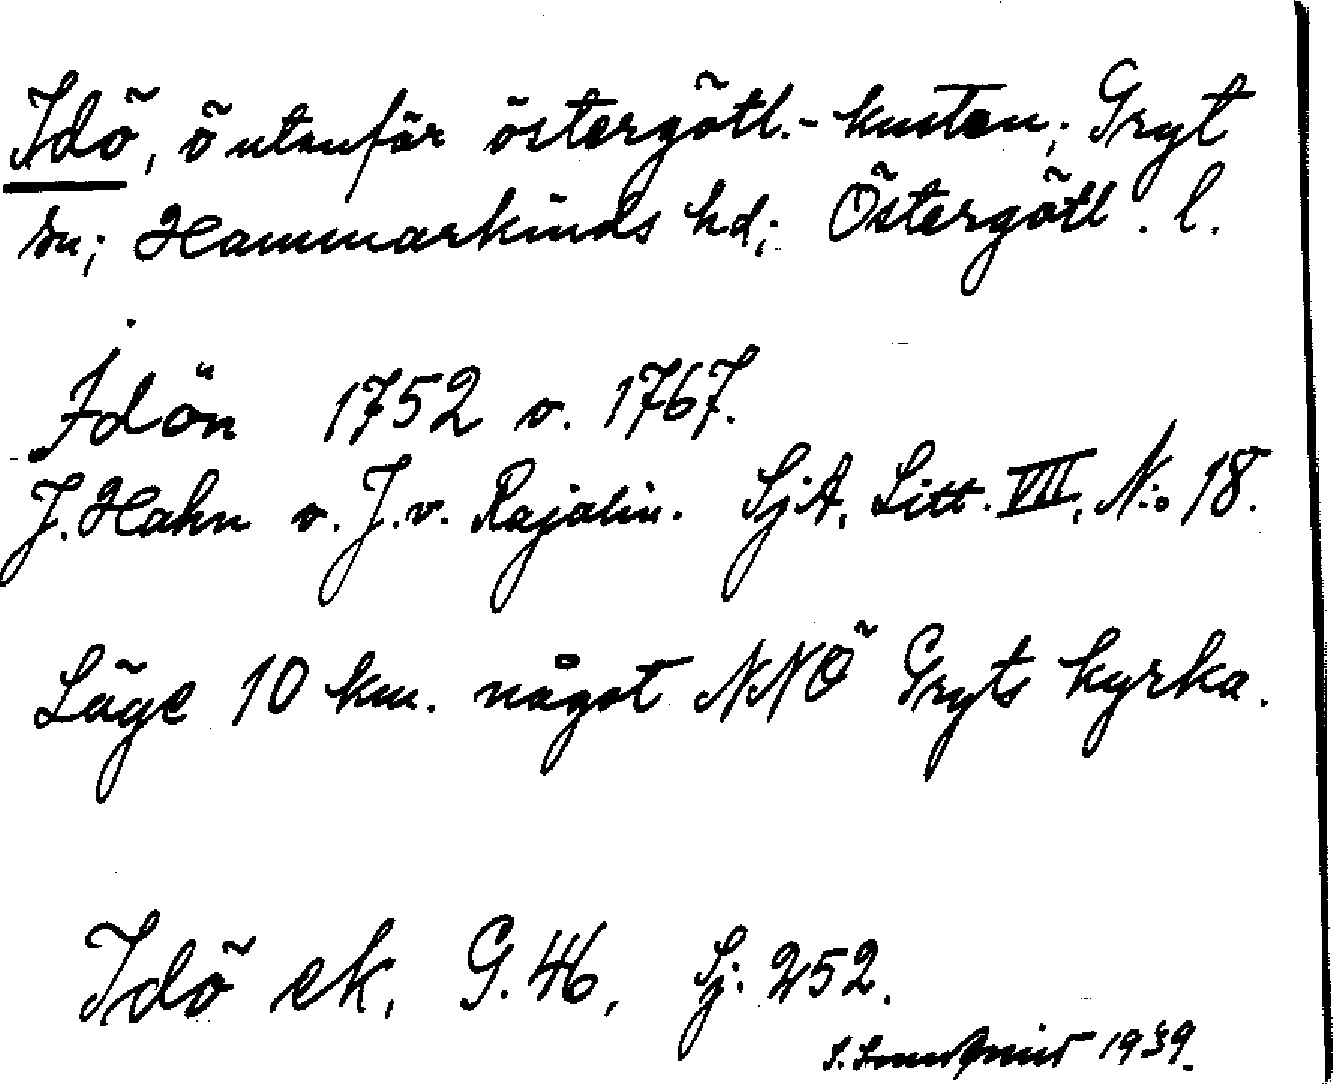 Idö, ö utanför östergötl.-kusten; Gryt
sn; Hammarkinds hd; Östergötl. l.
Idön 1752 o. 1767.
J. Hahn o. J. v. Rajalin. SjA. Litt. VIII. N:o 18.
Läge 10 km. något NNÖ Gryts kyrka.
Idö ek. G. 46, Sj. 252.
S. 1939.